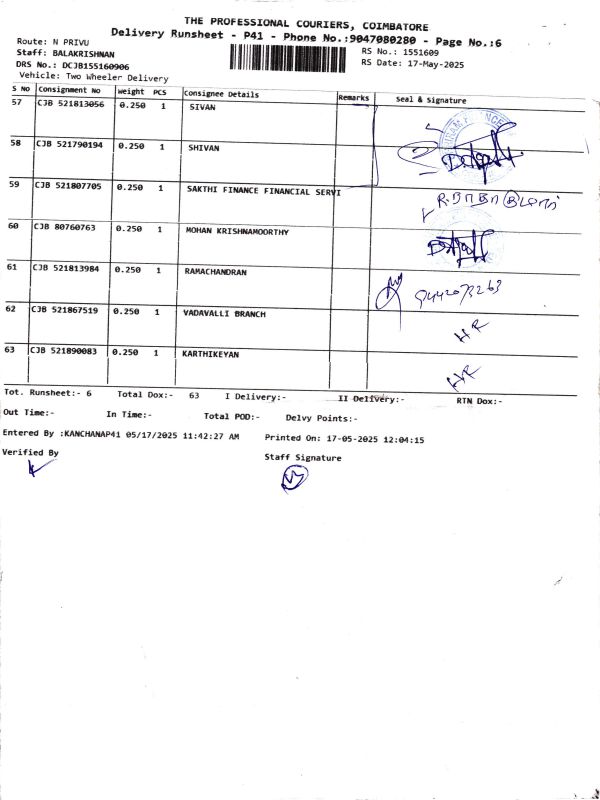 THE PROFESSIONAL COURIERS, COIMBATORE
Delivery Runsheet - P41 - Phone No.:9047080280 - Page No.:6
Route: N PRIVU
RS No.: 1551609
Staff: BALAKRISHNAN
RS Date: 17-May-2025
DRS No.: DCJB155160906
Vehicle: Two Wheeler Delivery
S No Consignment No Weight PCS Consignee Details Remarks Seal & Signature
57 CJB 521813056 0.250 1 SIVAN
58 CJB 521790194 0.250 1 SHIVAN
59 CJB 521807705 0.250 1 SAKTHI FINANCE FINANCIAL SERVI
60 CJB 80760763 0.250 1 MOHAN KRISHNAMOORTHY
61 CJB 521813984 0.250 1 RAMACHANDRAN
62 CJB 521867519 0.250 1 VADAVALLI BRANCH HR
63 CJB 521890083 0.250 1 KARTHIKEYAN HR
Tot. Runsheet:- 6 Total Dox:- 63 I Delivery:- II Delivery:- RTN Dox:-
Out Time:- In Time:- Total POD:- Delvy Points:-
Entered By :KANCHANAP41 05/17/2025 11:42:27 AM Printed On: 17-05-2025 12:04:15
Verified By
Staff Signature